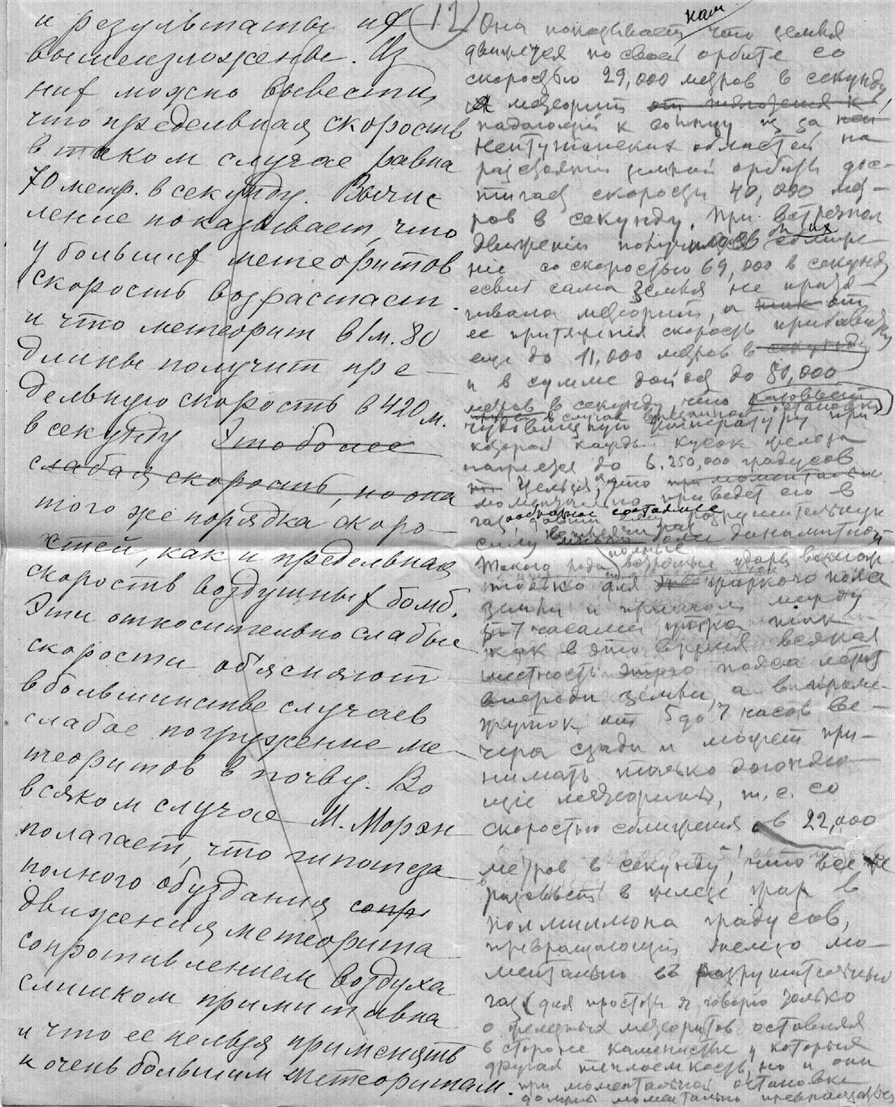 и результаты их
вышеизложены. Из
них можно вывести,
что предельная скорость
в таком случае равна
70 метр. в секунду. Вычис
ление показывает, что
у больших метеоритов
скорость возрастает
и что метеорит в 1 м. 80
длины получит пре-
дельную скорость в 420 м.
в секунду Это более
слабая скорость, но она
того же порядка скоро-
стей, как и предельная
скорость воздушных бомб.
Эти относительно слабые
скорости объясняют
в большинстве случаев
слабое погружение ме-
теоритов в почву. Во
всяком случае М. Морэн
полагает, что гипотеза
полного обуздания сопр
движения метеорита
сопротивлением воздуха
слишком примитивна
и что ее нельзя применять
к очень большим метеоритам.
(12)
нам
Она показывает что земля
движется по своей орбите со
скоростью 29,000 метров в секунду
а метеорит
падающий к солнцу из за
нептунских областей на
разстоянии земной орбиты дос-
тигает скорости 40,000 мет-
ров в секунду. При встречном
движении их сближе-
ние со скоростью 69,000 в секунду
если сама земля не притя-
гивала метеорит, а так от
ее притяжения скорость прибавит
еще до 11,000 метров в секунду
и в сумме дойдет до 80,000
метров в секунду что
в случае внезапной остановки
чудовищную температуру при
которой каждый кусок железа
нагреется до 6.250,000 градусов
Нельзя, что
моментально приведет его в
газообразное состояние
силу динамитной
Такого рода встречные удары
только для жаркого пояса
земли и притом между
5-7 часами утра так
как в это время всякая
местность этого пояса летит
впереди земли, а в проме-
жуток от 5 до 7 часов ве-
чера сзади и может при-
нимать только догоняю-
щие метеориты, т. е. со
скоростью сближения в 22,000
метров в секунду, что все же
разовьет в железе жар в
полмиллиона градусов,
превращающий железо мо-
ментально въ разрушительный
газ (для простоты я говорю только
о железных метеоритах оставляя
в стороне каменистые, у которых
другая теплоемкость, но и они
при моментальной остановке
должны моментально превращаться